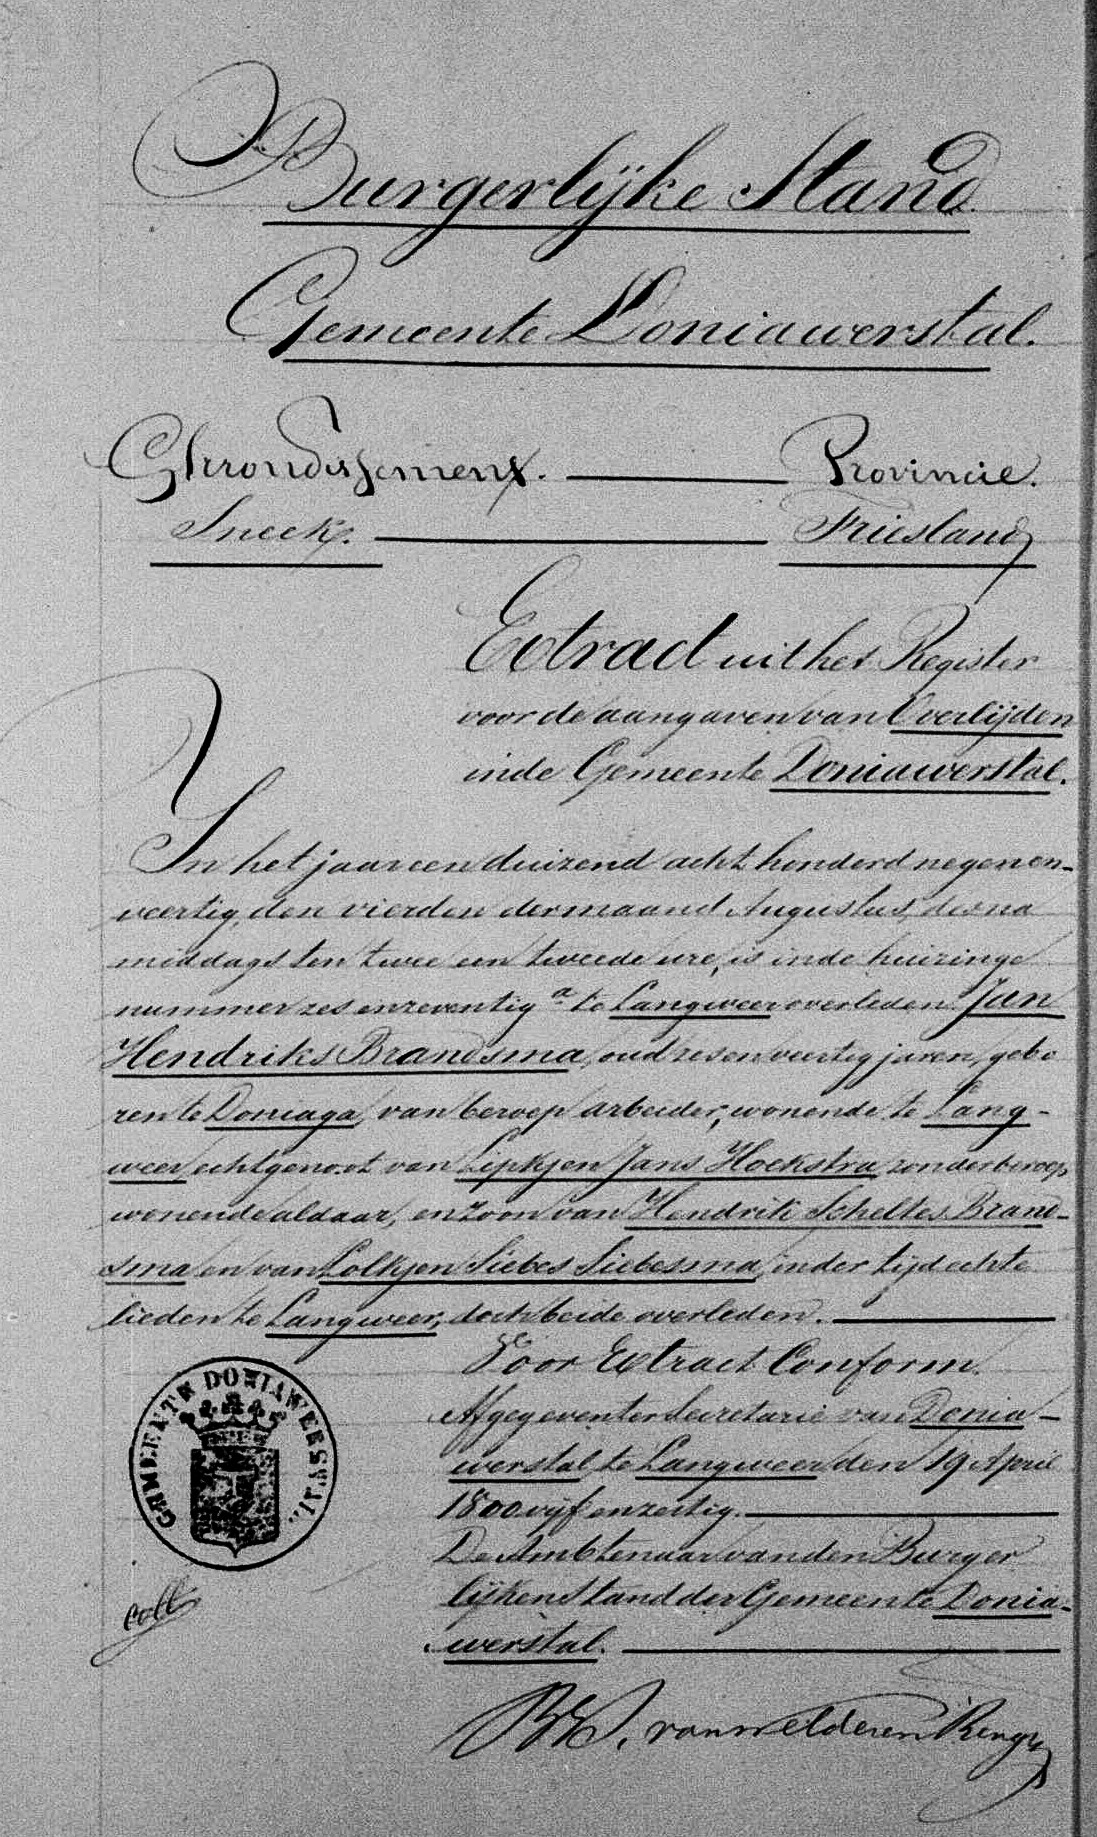 Burgerlijke Stand
Gemeente Doniawerstal.
Arrondissement. Provincie.
Sneek. Friesland
Extract uit het Register
voor de aangaven van Overlijden
in de Gemeente Doniawerstal.
In het jaar een duizend acht honderd negen en-
veertig, den vierden der maand Augustus, des na
middags ten twee een tweede ure, is in de huizinge
nummer zes en zeventig a te Langweer overleden Jan
Hendriks Brandsma, oud zes en veertig jaren, gebo
ren te Doniaga, van beroep arbeider, wonende te Lang-
weer, echtgenoot van Lipkjen Jans Hoekstra, zonder beroep
wonende aldaar, en zoon van Hendrik Scheltes Brand-
sma en van Lolkjen Siebes Siebesma, in der tijd echte
lieden te Langweer, doch beide overleden.
Voor Extract Conform.
Afgegeven ter Secretarie van Donia-
werstal, te Langweer den 19 April
1800 vijf en zestig.
De Ambtenaar van den Burger
lijken Stand der Gemeente Donia-
werstal.
GEMEENTE DONIAWERSTAL.
coll
van Welderen Rengers